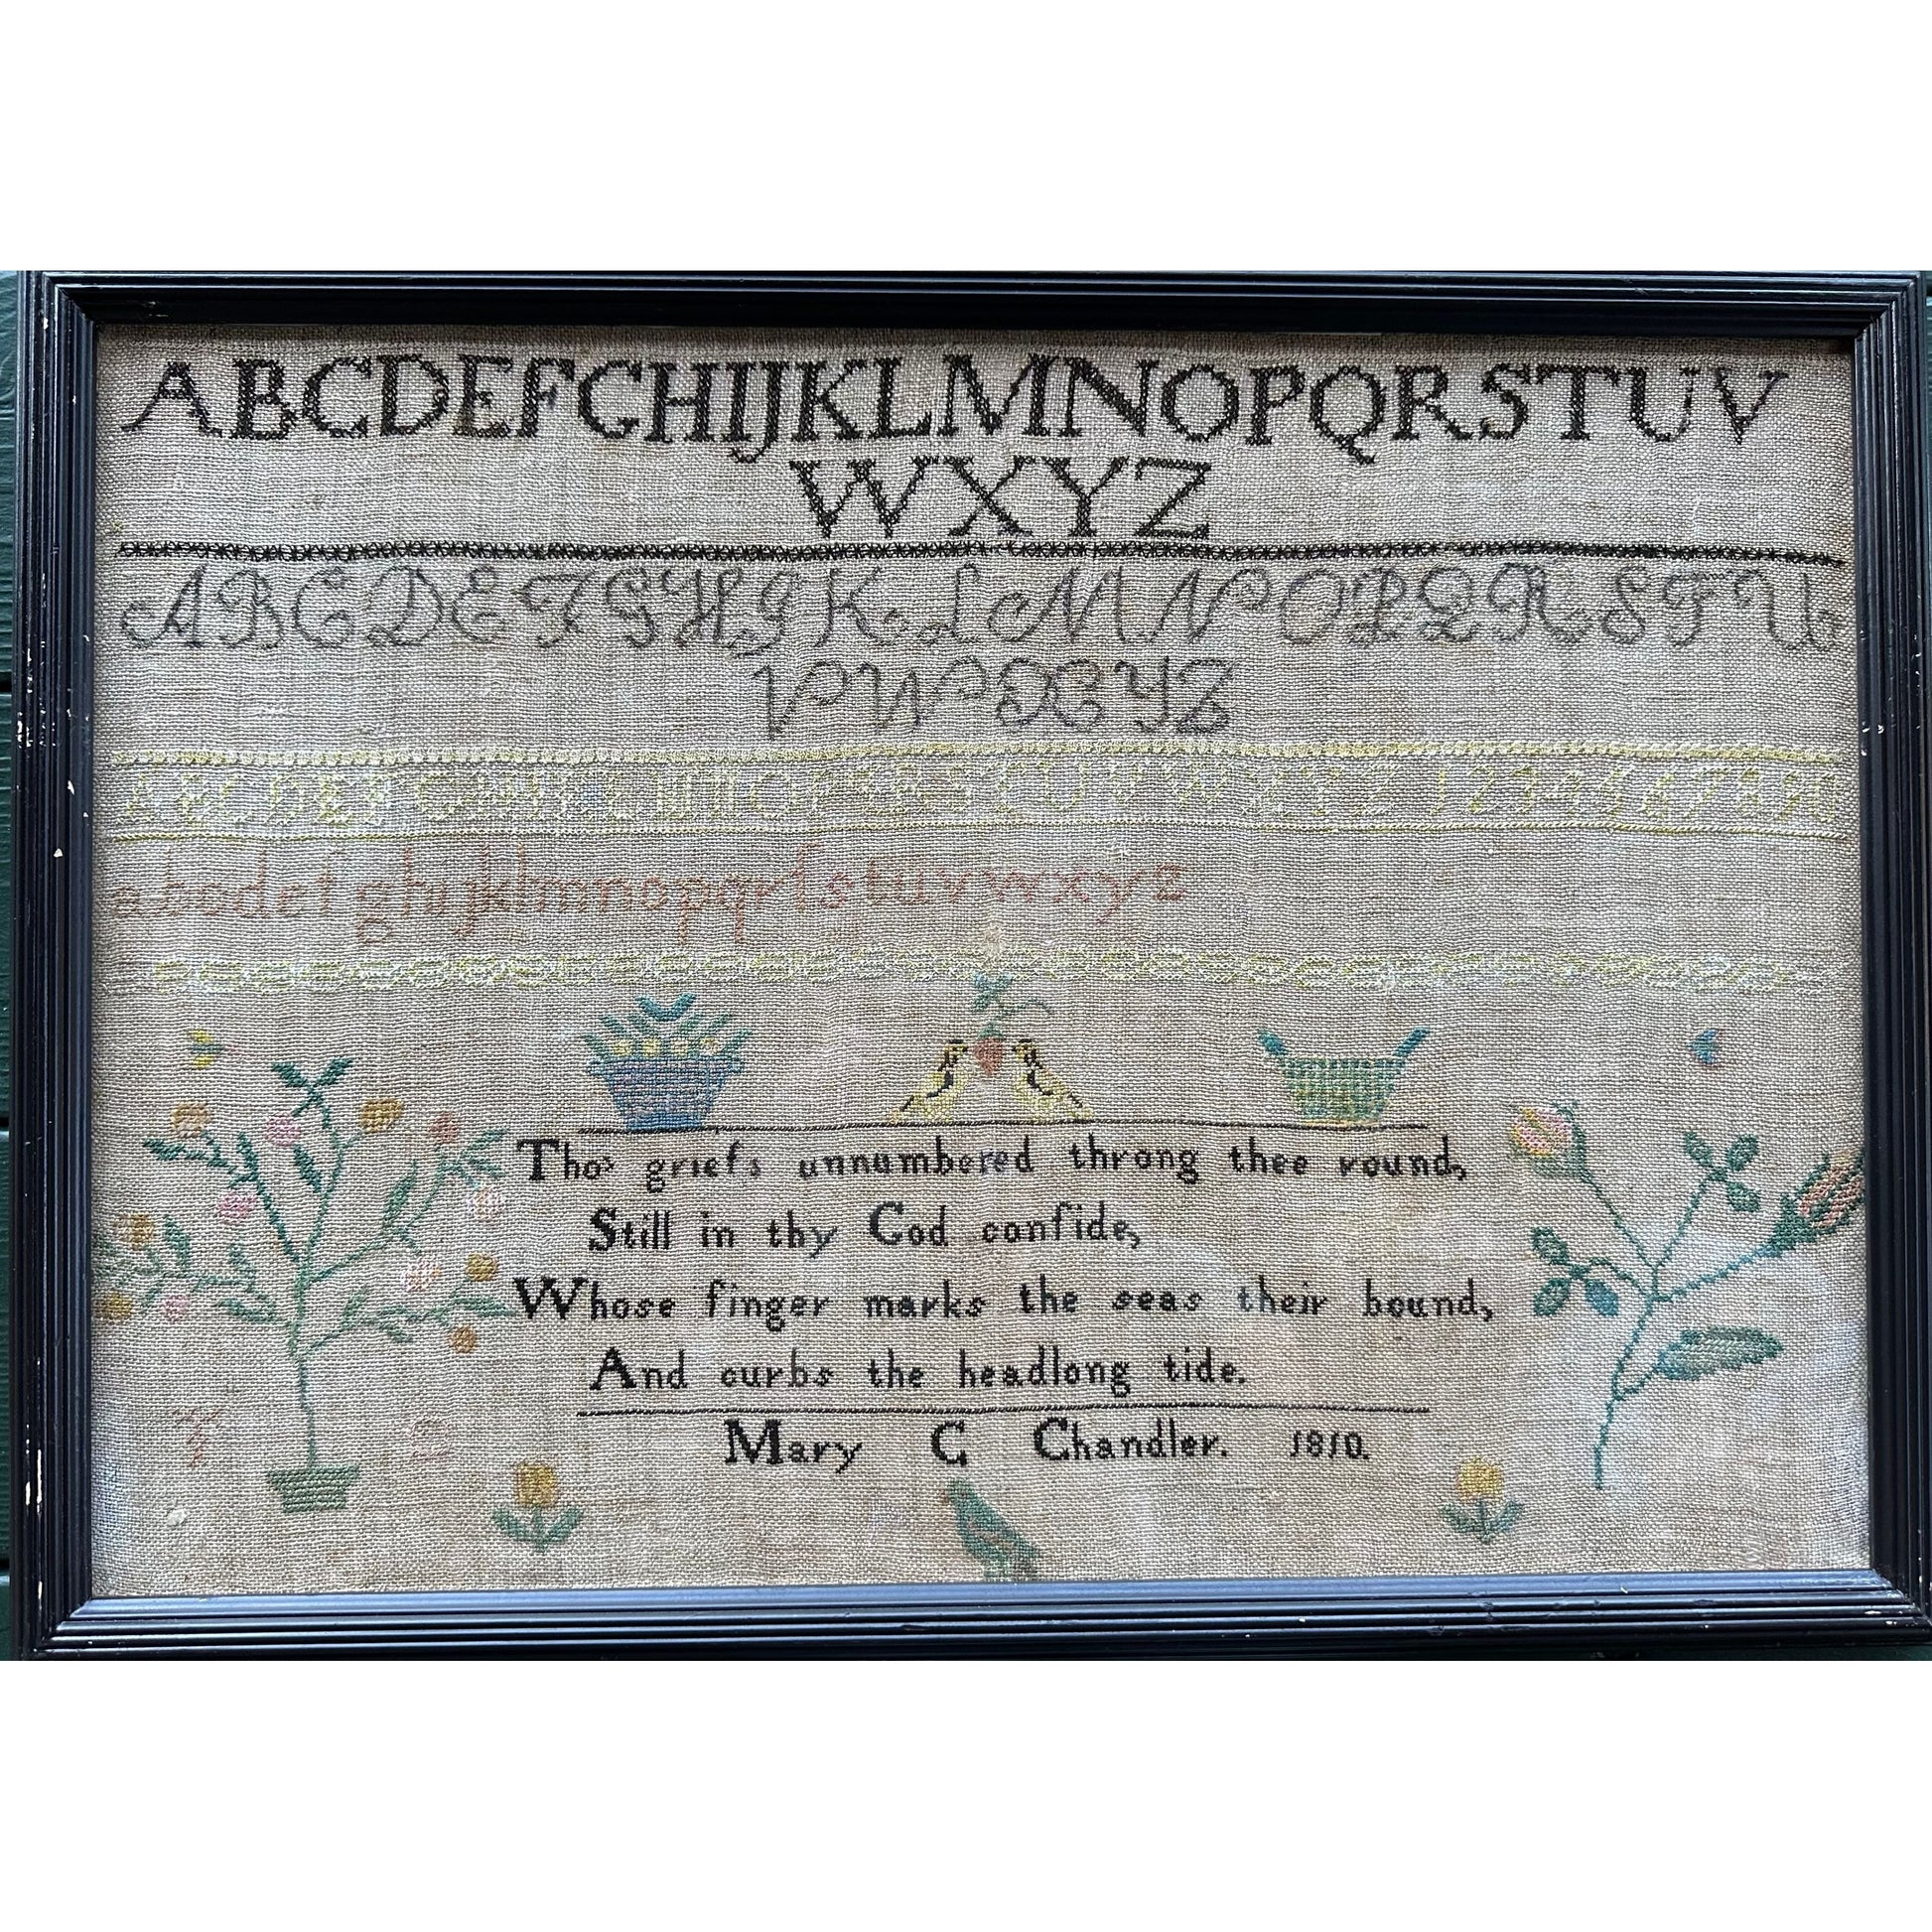 ABCDEFGHIJKLMNOPQRSTUV
WXYZ
ABCDEFGHIJKLMNOPQRSTU
VWXYZ
ABCDEFGHIJKLMNOPQRSTUVWXYZ 1234567890
abcdefghijklmnopqrſstuvwxyz
Tho' griefs unnumbered throng thee round,
Still in thy God confide,
Whose finger marks the seas their bound,
And curbs the headlong tide.
Mary C Chandler. 1810.